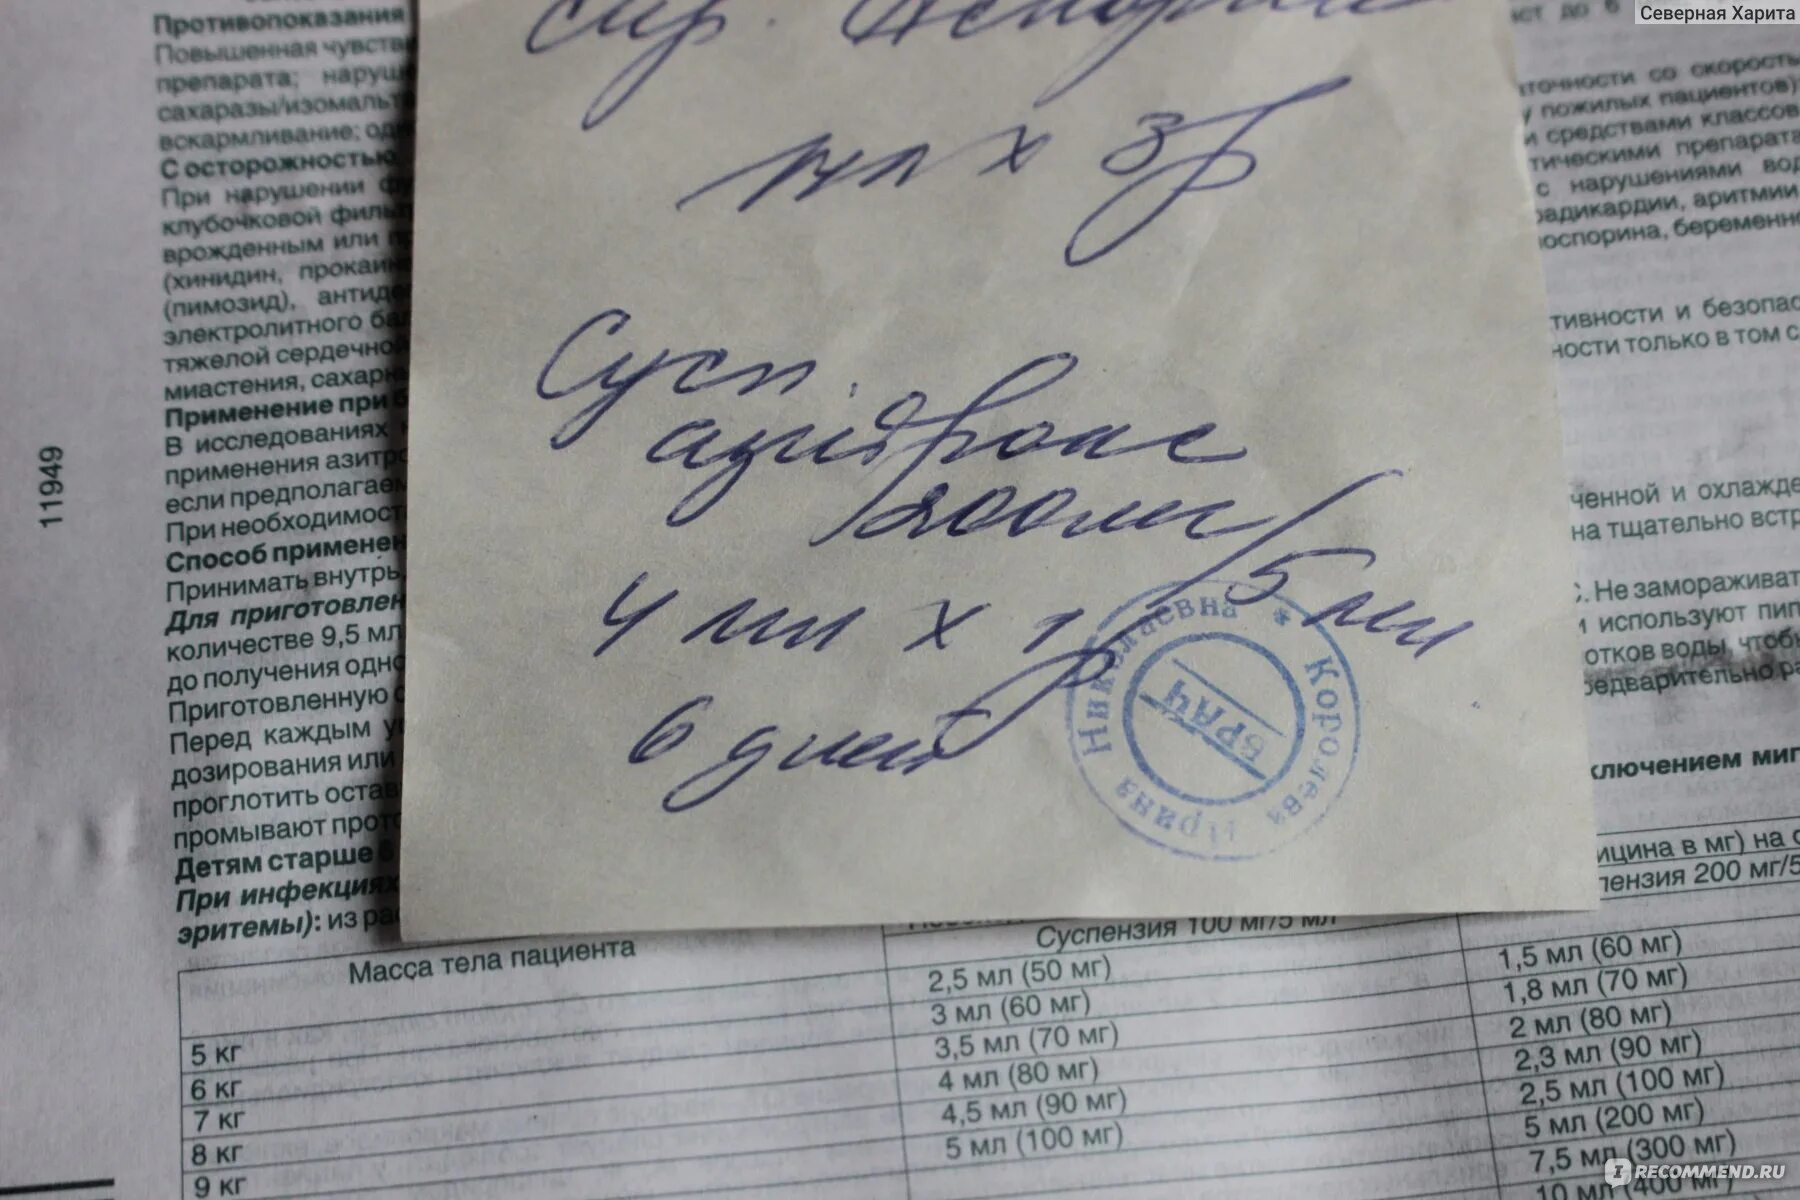 Северная Харита
Противопоказания
Повышенная чувств
препарата; наруш
сахаразы/изомальт
вскармливание; од
С осторожностью
При нарушении
клубочковой филь
врожденным или
(хинидин, прокаи
(пимозид), антиде
электролитного ба
тяжелой сердечно
миастения, сахарн
Применение при б
В исследованиях
применения азитро
если предполагаем
При необходимост
Способ применен
Принимать внутрь,
Для приготовлен
количестве 9,5 мл
до получения одно
Приготовленную
Перед каждым
дозирования или
проглотить оста
промывают прото
Детям старше
При инфекциях
эритемы): из ра
11949
сир.
мл х 3 р
Сусп.
азитрокс
200 мг/5 мл
4 мл х 1 р
6 дней
Королева Ирина Николаевна *
ВРАЧ
ст до 6
точности со скорость
у пожилых пациентов)
и средствами классов
тическими препарата
с нарушениями вод
радикардии, аритмии
лоспорина, беременно
тивности и безопас
ности только в том с
ченной и охлажде
на тщательно встр
С. Не замораживат
и используют пип
отков воды, чтобы
редварительно ра
ключением миг
ицина в мг) на
пензия 200 мг/5
Масса тела пациента
Суспензия 100 мг/5 мл
2,5 мл (50 мг)
1,5 мл (60 мг)
5 кг
3 мл (60 мг)
1,8 мл (70 мг)
6 кг
3,5 мл (70 мг)
2 мл (80 мг)
7 кг
4 мл (80 мг)
2,3 мл (90 мг)
8 кг
4,5 мл (90 мг)
2,5 мл (100 мг)
9 кг
5 мл (100 мг)
5 мл (200 мг)
7,5 мл (300 мг)
10 мл (400 мг)
IRECOMMEND.RU